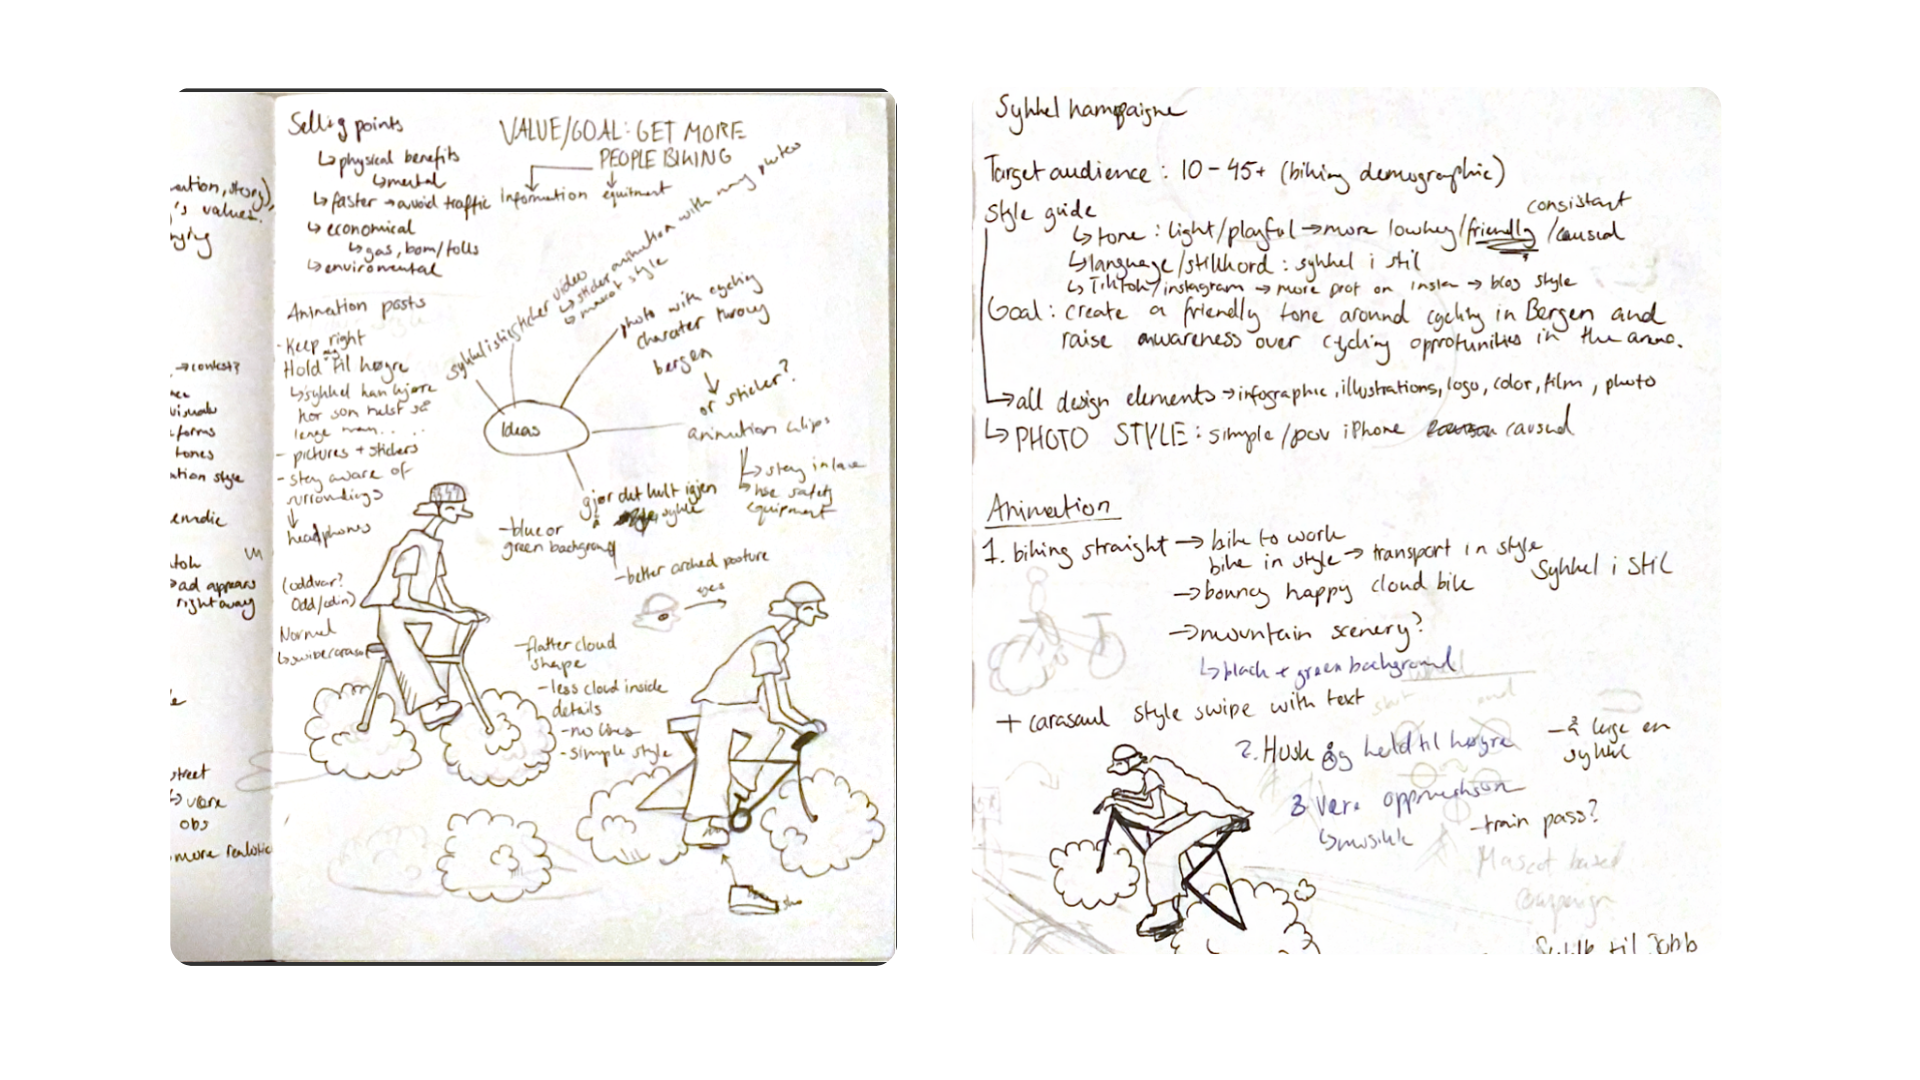 Selling points
↳physical benefits
↳mental
↳faster →avoid traffic
↳economical
↳gas, bom/tolls
↳enviromental
VALUE/GOAL: GET MORE
PEOPLE BIKING
Information equitment
Animation posts
- Keep right
Hold til høgre
↳sykkel kan kjøre
hor som helst så
lenge man. . . .
- pictures + stickers
- stay aware of
surroundings
headphones
(oddvar?
Odd/odin)
Normal
Ideas
sticker video
↳sticker animation with many photos
↳mascot style
photo with cycling
charater throug
bergen
or sticker?
animation clips
↳stay in lane
use safety
equipment
gjør det kult igjen
å sykle
-blue or
green background
-better arched posture
eyes
-flatter cloud
shape
-less cloud inside
details
-no lines
-simple style
's values.
→contest?
visuals
forms
tones
style
ad appears
right away
street
↳være
obs
more realistic
Sykkel kampaigne
Target audience : 10-45+ (biking demographic)
Style guide
consistant
↳tone : light/playful →more lowkey/friendly /causual
↳language/stikkord : sykkel i stil
↳TikTok/instagram → more prof on insta → blog style
Goal: create a friendly tone around cycling in Bergen and
raise awareness over cycling opprotunities in the area.
↳all design elements →infographic, illustrations, logo, color, film, photo
↳PHOTO STYLE: simple /pov iPhone causual
Animation
1. biking straight → bike to work
bike in style → transport in style
Sykkel i Stil
→bouncy happy cloud bike
→mountain scenery?
↳black + green background
+ carasaul style swipe with text
2. Husk å hold til høgre
-å leige en
sykkel
3 Være oppmerksom
↳musikk
-train pass?
Mascot based
campaign
Sykle til Jobb